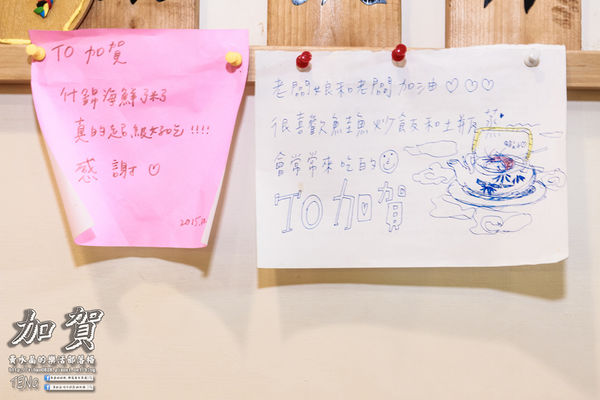 TO 加賀
什錦海鮮粥
真的超級好吃!!!!
感謝♡
老闆娘和老闆加油♡♡♡
很喜歡鮭魚炒飯和土瓶蒸
會常常來吃的☺
TO 加賀
加賀
黃水晶的樂活部落格
TENG